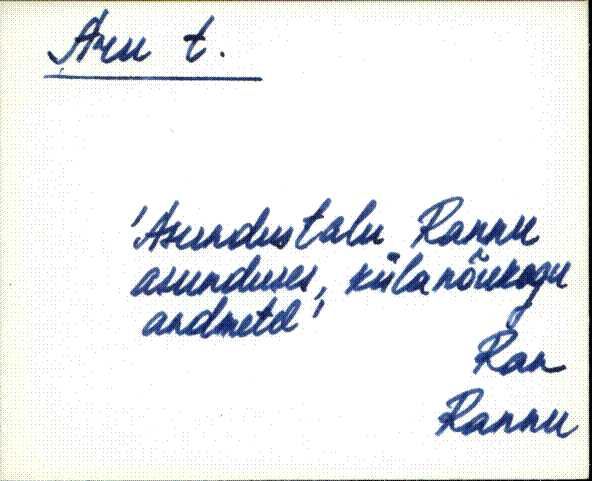 Aru t.
'Asundustalu Rannu
asunduses, külanõukogu
andmetel'
Ran
Rannu